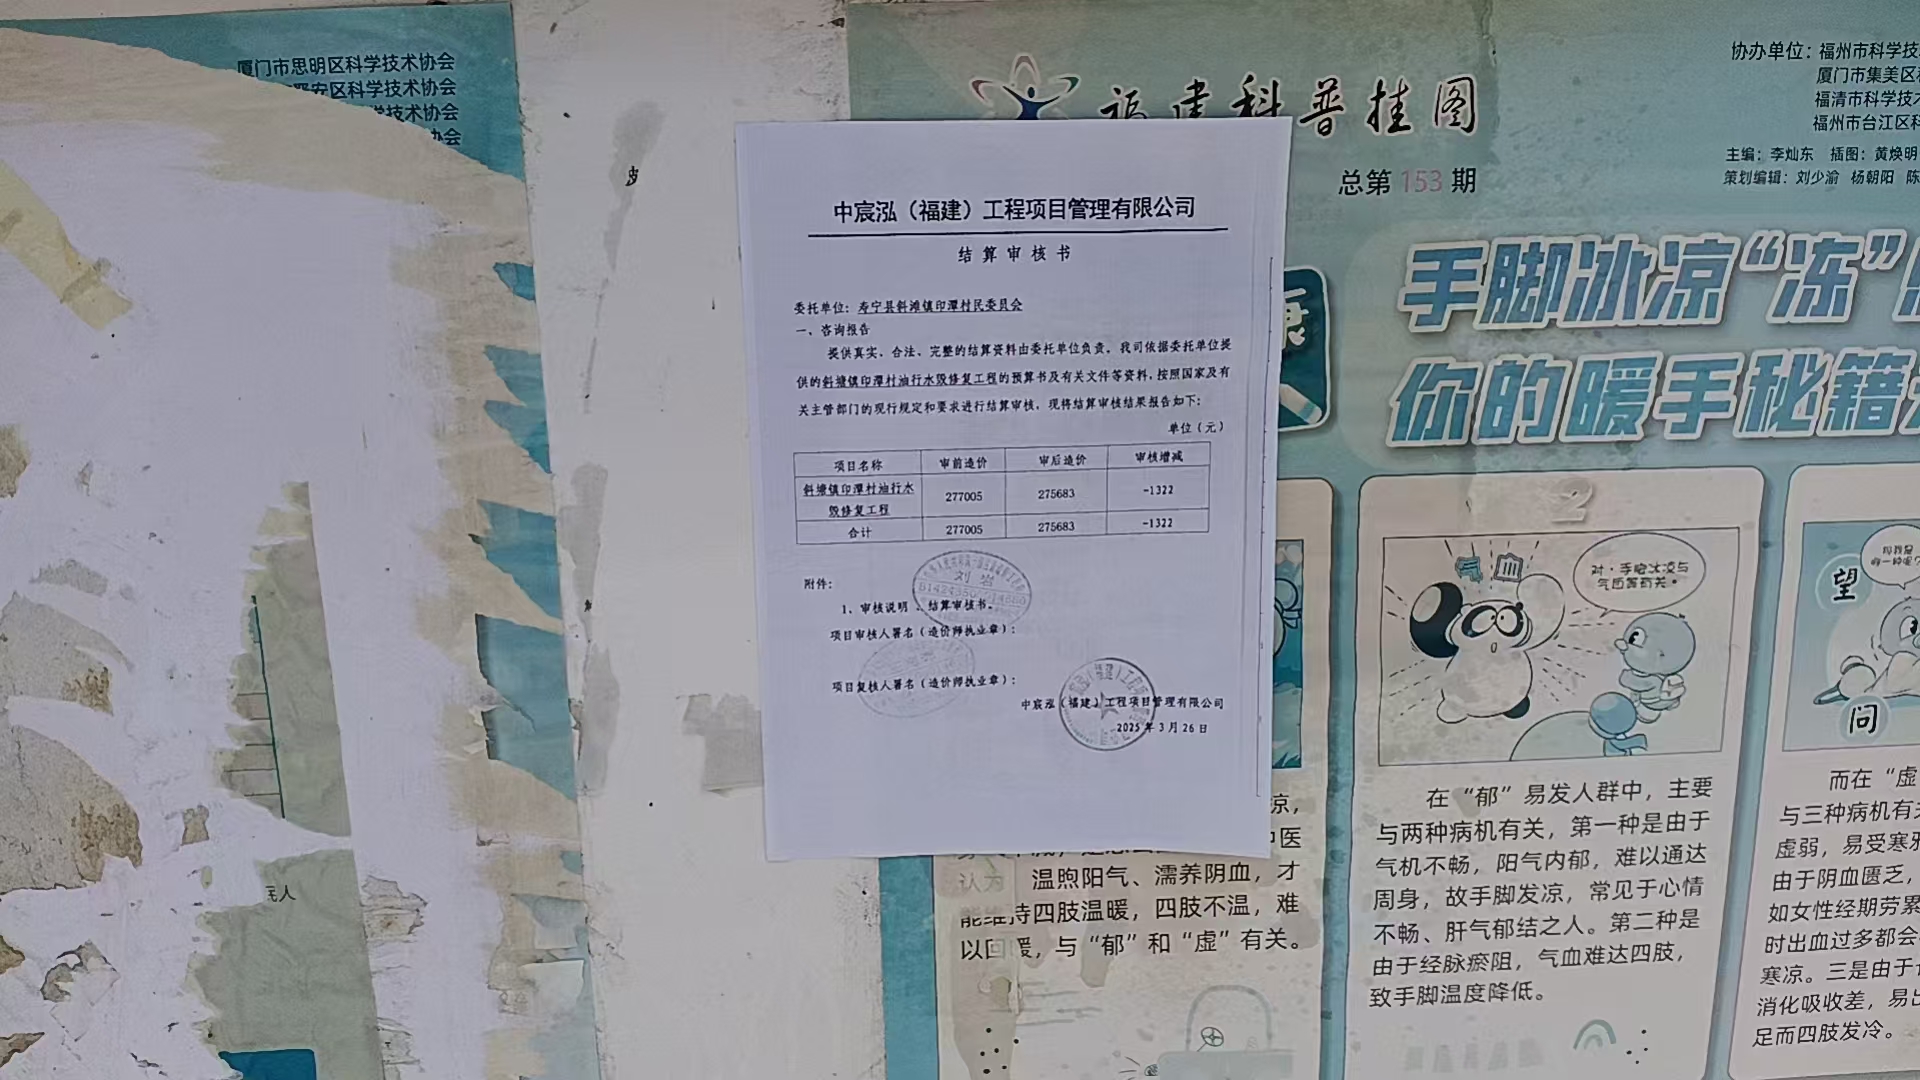 厦门市思明区科学技术协会
晋安区科学技术协会
学技术协会
协会
民人
福建科普挂图
总第 153 期
协办单位：福州市科学技
厦门市集美区科
福清市科学技术
福州市台江区科
主编：李灿东 插图：黄焕明
策划编辑：刘少渝 杨朝阳 陈
手脚冰凉“冻”
你的暖手秘籍
康
中宸泓（福建）工程项目管理有限公司
结算审核书
委托单位：寿宁县斜滩镇印潭村民委员会
一、咨询报告
提供真实、合法、完整的结算资料由委托单位负责。我司依据委托单位提
供的斜塘镇印潭村油行水毁修复工程的预算书及有关文件等资料，按照国家及有
关主管部门的现行规定和要求进行结算审核，现将结算审核结果报告如下：
单位（元）
项目名称 审前造价 审后造价 审核增减
斜塘镇印潭村油行水
毁修复工程 277005 275683 -1322
合计 277005 275683 -1322
附件：
刘岩
1、审核说明、结算审核书。
项目审核人署名（造价师执业章）：
项目复核人署名（造价师执业章）：
中宸泓（福建）工程项目管理有限公司
2025 年 3 月 26 日
凉，
中医
认为 温煦阳气、濡养阴血，才
能维持四肢温暖，四肢不温，难
以回暖，与“郁”和“虚”有关。
2
气 血
对，手脚冰凉与
气血有关。
在“郁”易发人群中，主要
与两种病机有关，第一种是由于
气机不畅，阳气内郁，难以通达
周身，故手脚发凉，常见于心情
不畅、肝气郁结之人。第二种是
由于经脉瘀阻，气血难达四肢，
致手脚温度降低。
望
问
而在“虚
与三种病机有关
虚弱，易受寒邪
由于阴血匮乏，
如女性经期劳累
时出血过多都会
寒凉。三是由于
消化吸收差，易出
足而四肢发冷。